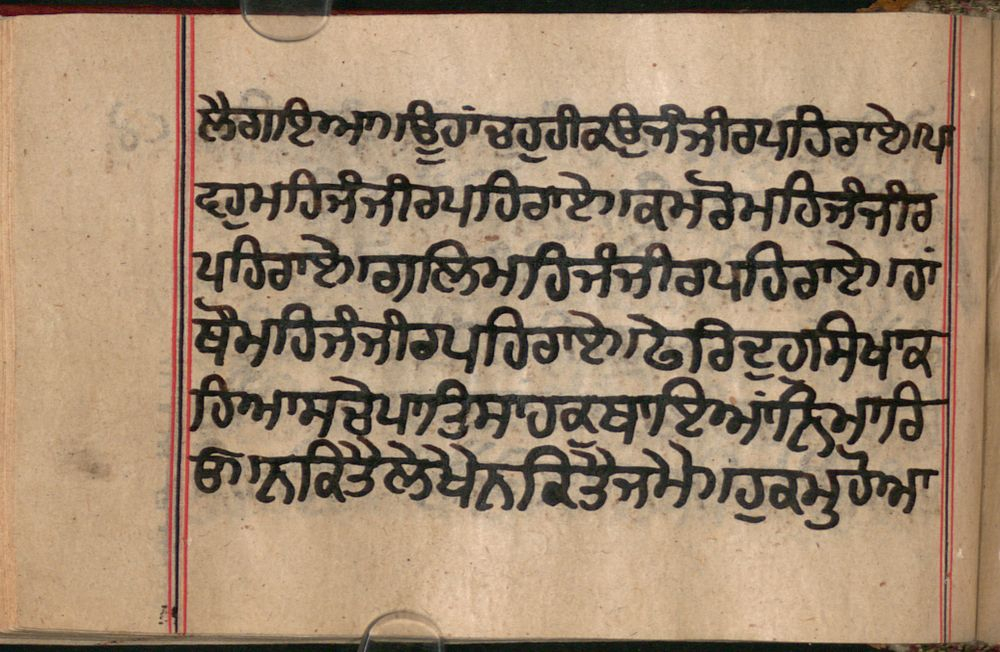 ਲੈਗਇਆ।ਊਹਾਂਚਹੁਹੀਕਉਜੰਜੀਰਪਹਿਰਾਏ।ਪ
ਦਹੁਮਹਿਜੰਜੀਰਪਹਿਰਾਏ।ਕਮਰੋਮਹਿਜੰਜੀਰ
ਪਹਿਰਾਏ।ਗਲਿਮਹਿਜੰਜੀਰਪਹਿਰਾਏ।ਹਾਂ
ਥੌਮਹਿਜੰਜੀਰਪਹਿਰਾਏ।ਫੇਰਿਦੁਹੁਸਿਖਾਕ
ਹਿਆਸਚੇਪਾਤਿਸਾਹਕੂਬਾਇਆਂਨਿਮਾਰਿ
ਓ।ਨਕਿਤੈਲੇਖੈਨਕਿਤੈਜਮੇ।ਹੁਕਮੁਹੋਆ